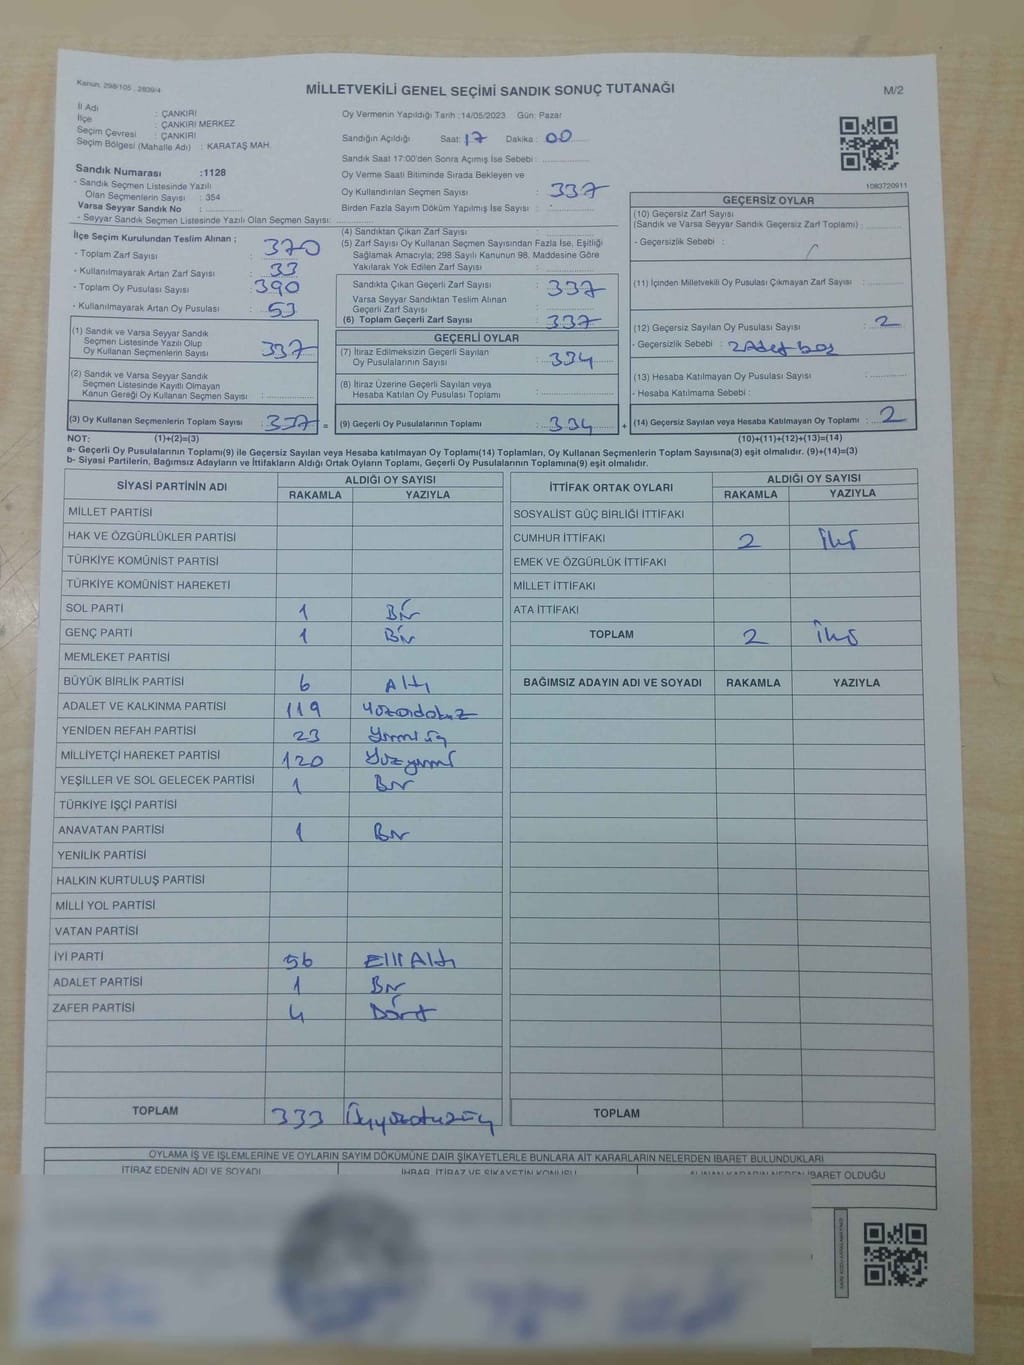 Kanun, 298/105 , 2839/4
MİLLETVEKİLİ GENEL SEÇİMİ SANDIK SONUÇ TUTANAĞI
M/2
İl Adı : ÇANKIRI
İlçe : ÇANKIRI MERKEZ
Seçim Çevresi : ÇANKIRI
Seçim Bölgesi (Mahalle Adı) : KARATAŞ MAH.
Sandık Numarası :1128
- Sandık Seçmen Listesinde Yazılı
Olan Seçmenlerin Sayısı : 354
Varsa Seyyar Sandık No :
- Seyyar Sandık Seçmen Listesinde Yazılı Olan Seçmen Sayısı:
Oy Vermenin Yapıldığı Tarih :14/05/2023 Gün: Pazar
Sandığın Açıldığı Saat: 17 Dakika : 00
Sandık Saat 17:00'den Sonra Açımış İse Sebebi :
Oy Verme Saati Bitiminde Sırada Bekleyen ve
Oy Kullandırılan Seçmen Sayısı : 337
Birden Fazla Sayım Döküm Yapılmış İse Sayısı :
1083720911
İlçe Seçim Kurulundan Teslim Alınan ;
- Toplam Zarf Sayısı : 370
- Kullanılmayarak Artan Zarf Sayısı : 33
- Toplam Oy Pusulası Sayısı : 390
- Kullanılmayarak Artan Oy Pusulası : 53
(1) Sandık ve Varsa Seyyar Sandık
Seçmen Listesinde Yazılı Olup
Oy Kullanan Seçmenlerin Sayısı : 337
(2) Sandık ve Varsa Seyyar Sandık
Seçmen Listesinde Kayıtlı Olmayan
Kanun Gereği Oy Kullanan Seçmen Sayısı :
(3) Oy Kullanan Seçmenlerin Toplam Sayısı : 337 =
(4) Sandıktan Çıkan Zarf Sayısı :
(5) Zarf Sayısı Oy Kullanan Seçmen Sayısından Fazla İse, Eşitliği
Sağlamak Amacıyla; 298 Sayılı Kanunun 98. Maddesine Göre
Yakılarak Yok Edilen Zarf Sayısı :
Sandıkta Çıkan Geçerli Zarf Sayısı : 337
Varsa Seyyar Sandıktan Teslim Alınan
Geçerli Zarf Sayısı :
(6) Toplam Geçerli Zarf Sayısı : 337
GEÇERLİ OYLAR
(7) İtiraz Edilmeksizin Geçerli Sayılan
Oy Pusulalarının Sayısı : 334
(8) İtiraz Üzerine Geçerli Sayılan veya
Hesaba Katılan Oy Pusulası Toplamı :
(9) Geçerli Oy Pusulalarının Toplamı : 334 +
GEÇERSİZ OYLAR
(10) Geçersiz Zarf Sayısı
(Sandık ve Varsa Seyyar Sandık Geçersiz Zarf Toplamı) :
- Geçersizlik Sebebi :
(11) İçinden Milletvekili Oy Pusulası Çıkmayan Zarf Sayısı :
(12) Geçersiz Sayılan Oy Pusulası Sayısı : 2
- Geçersizlik Sebebi : 2 Adet boş
(13) Hesaba Katılmayan Oy Pusulası Sayısı :
- Hesaba Katılmama Sebebi :
(14) Geçersiz Sayılan veya Hesaba Katılmayan Oy Toplamı : 2
NOT: (1)+(2)=(3) (10)+(11)+(12)+(13)=(14)
a- Geçerli Oy Pusulalarının Toplamı(9) ile Geçersiz Sayılan veya Hesaba katılmayan Oy Toplamı(14) Toplamları, Oy Kullanan Seçmenlerin Toplam Sayısına(3) eşit olmalıdır. (9)+(14)=(3)
b- Siyasi Partilerin, Bağımsız Adayların ve İttifakların Aldığı Ortak Oyların Toplamı, Geçerli Oy Pusulalarının Toplamına(9) eşit olmalıdır.
SİYASİ PARTİNİN ADI
ALDIĞI OY SAYISI
RAKAMLA YAZIYLA
MİLLET PARTİSİ
HAK VE ÖZGÜRLÜKLER PARTİSİ
TÜRKİYE KOMÜNİST PARTİSİ
TÜRKİYE KOMÜNİST HAREKETİ
SOL PARTİ 1 Bir
GENÇ PARTİ 1 Bir
MEMLEKET PARTİSİ
BÜYÜK BİRLİK PARTİSİ 6 Altı
ADALET VE KALKINMA PARTİSİ 119 Yüzondokuz
YENİDEN REFAH PARTİSİ 23 Yirmi üç
MİLLİYETÇİ HAREKET PARTİSİ 120 Yüzyirmi
YEŞİLLER VE SOL GELECEK PARTİSİ 1 Bir
TÜRKİYE İŞÇİ PARTİSİ
ANAVATAN PARTİSİ 1 Bir
YENİLİK PARTİSİ
HALKIN KURTULUŞ PARTİSİ
MİLLİ YOL PARTİSİ
VATAN PARTİSİ
İYİ PARTİ 56 Elli Altı
ADALET PARTİSİ 1 Bir
ZAFER PARTİSİ 4 Dört
TOPLAM 333 Üçyüzotuzüç
İTTİFAK ORTAK OYLARI
ALDIĞI OY SAYISI
RAKAMLA YAZIYLA
SOSYALİST GÜÇ BİRLİĞİ İTTİFAKI
CUMHUR İTTİFAKI 2 İki
EMEK VE ÖZGÜRLÜK İTTİFAKI
MİLLET İTTİFAKI
ATA İTTİFAKI
TOPLAM 2 İki
BAĞIMSIZ ADAYIN ADI VE SOYADI RAKAMLA YAZIYLA
TOPLAM
OYLAMA İŞ VE İŞLEMLERİNE VE OYLARIN SAYIM DÖKÜMÜNE DAİR ŞİKAYETLERLE BUNLARA AİT KARARLARIN NELERDEN İBARET BULUNDUKLARI
İTİRAZ EDENİN ADI VE SOYADI
İHBAR, İTİRAZ VE ŞİKAYETİN KONUSU
ALINAN KARARIN NEDEN İBARET OLDUĞU